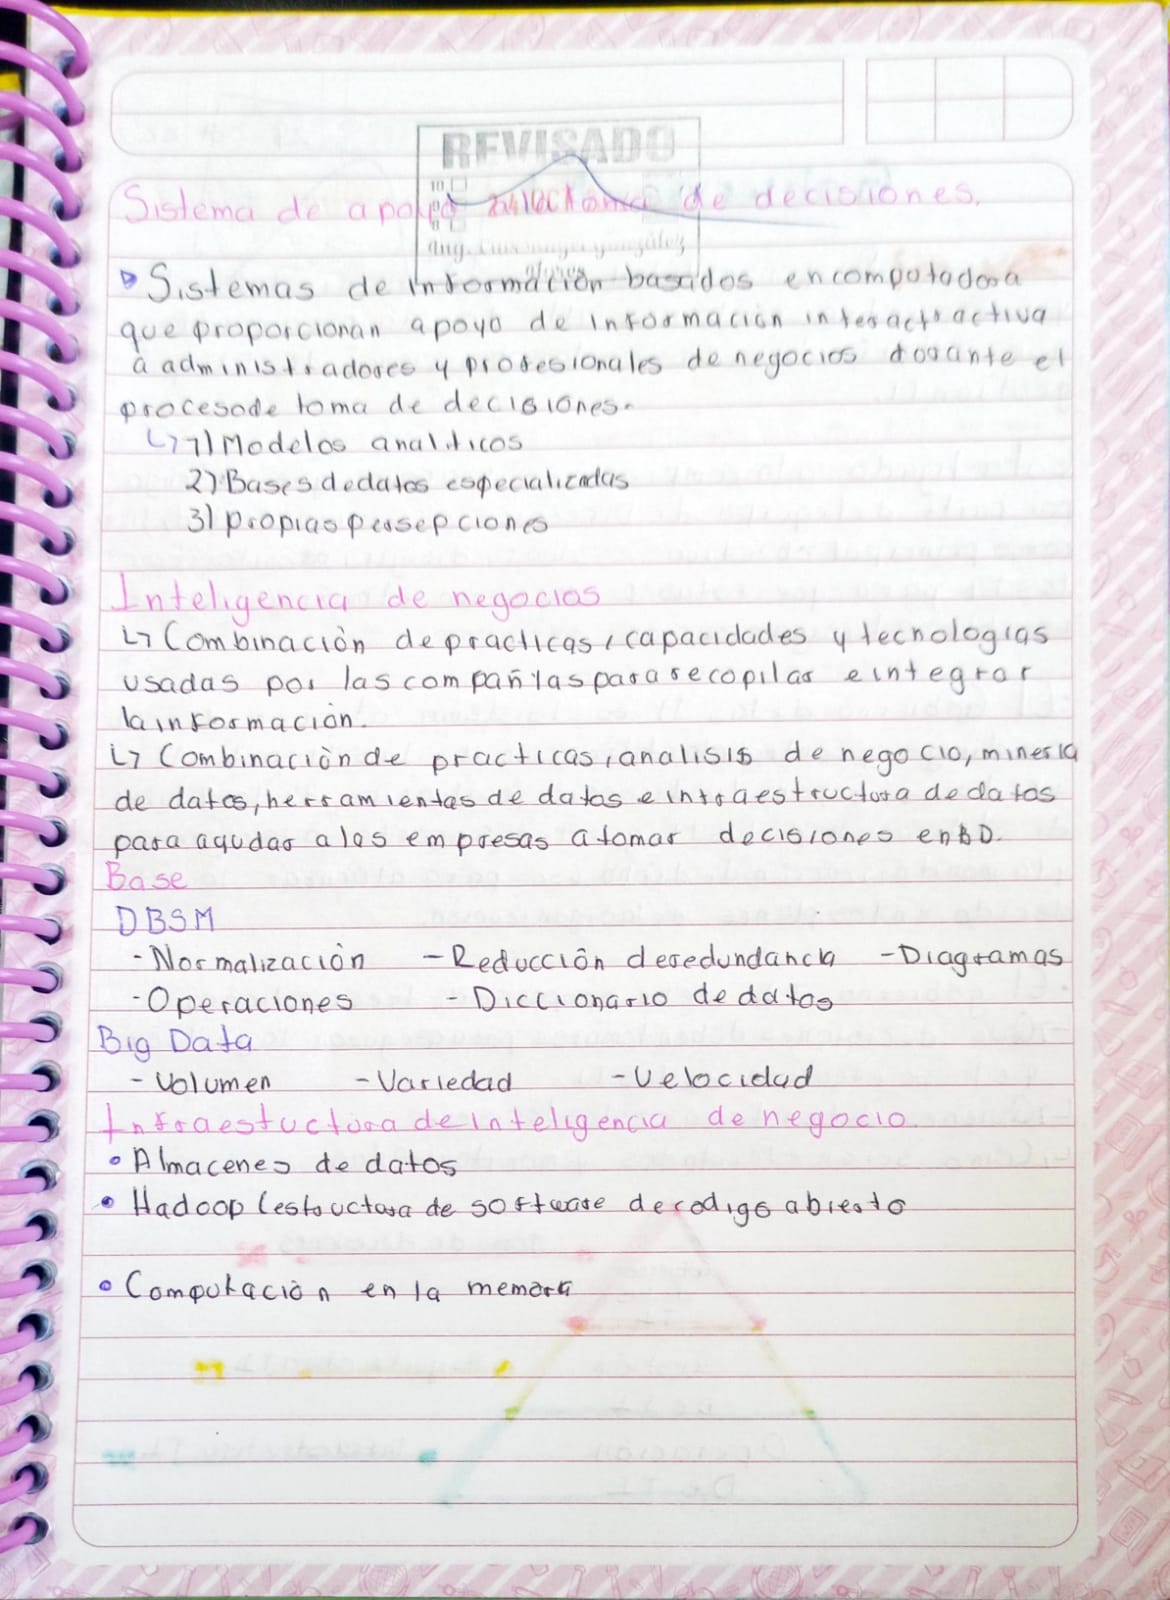 REVISADO
10
8
Sistema de apoyo a la toma de decisiones.
Ing.
Sistemas de información basados en computadora
que proporcionan apoyo de información interactractiva
a administradores y profesionales de negocios durante el
proceso de toma de decisiones.
↳ 1) Modelos analiticos
2) Bases de datos especializadas
3) propias persepciones
Inteligencia de negocios
↳ Combinación de practicas, capacidades y tecnologias
usadas por las compañias para recopilar e integrar
la información.
↳ Combinación de practicas, analisis de negocio, mineria
de datos, herramientas de datos e intraestructura de datos
para aqudar a las empresas a tomar decisiones en BD.
Base
DBSM
- Normalización - Reducción de redundancia - Diagramas
- Operaciones - Diccionario de datos
Big Data
- Volumen - Variedad - Velocidad
Infraestuctura de inteligencia de negocio.
• Almacenes de datos
• Hadoop (estructura de software de codigo abierto
• Computación en la memoria